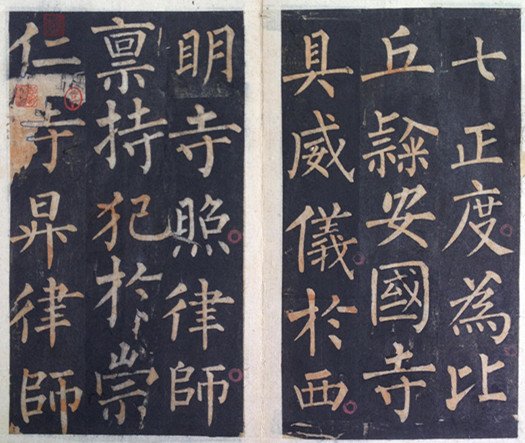 七正度為比
丘隸安國寺
具威儀於西
明寺照律師
禀持犯於崇
仁寺昇律師